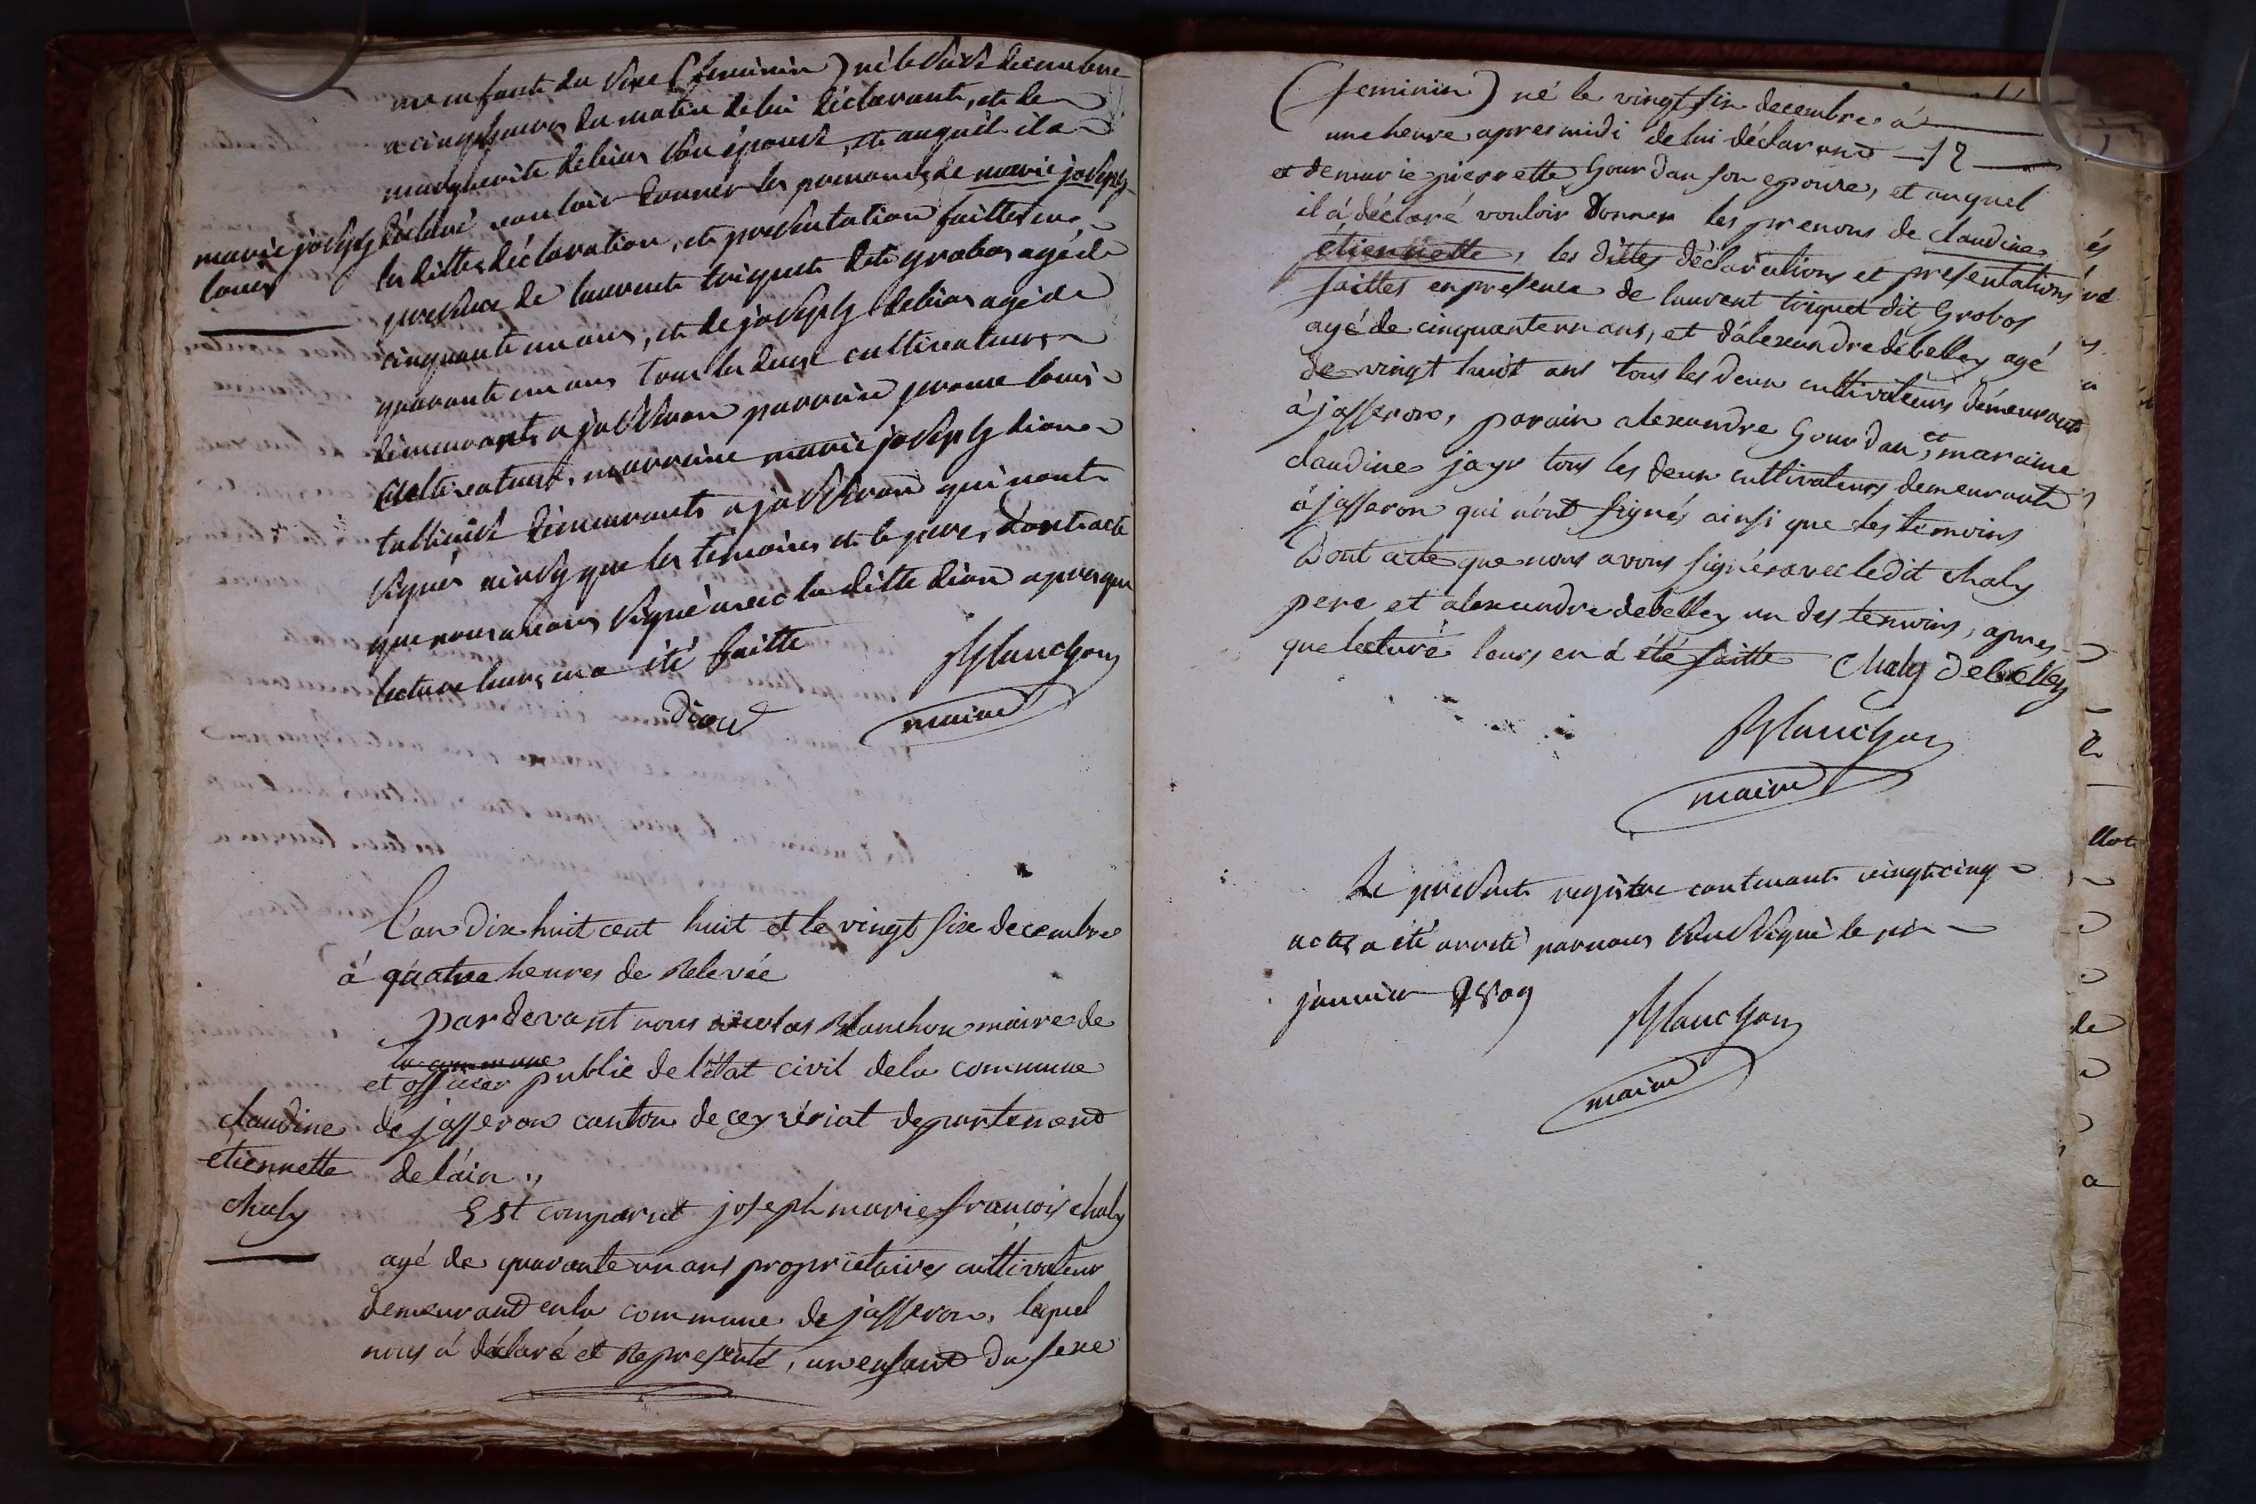 un enfant du sexe (feminin) né le seize decembre
a cinq heures du matin de lui déclarant, et de
marguerite debias son épouse, et auquel il a
déclaré vouloir donner les prenoms de marie joseph
marie joseph
louis
les dittes déclaration, et presentation faittes en
presence de laurent triquet dit grobos agé de
cinquante un ans, et de joseph debias agé de
quarante un ans tous les deux cultivateurs
demeurants a jasseron parrain jerome louis
cultivateur, marraine marie joseph dion
tallieuse demeurants a jasseron qui nont
signés ainsy que les témoins et le pere, dont acte
que nous avons signé avec la ditte dion apres que
lecture leurs en a été faitte
dion
Blanchon
maire
L'an dix huit cent huit et le vingt six decembre
à quatre heures de relevée
pardevant nous nicolas Blanchon maire de
la commune
et officier public de l'état civil de la commune
de jasseron canton de ceyzériat departement
de l'ain,,
claudine
etiennette
chaly
Est comparut joseph marie françois chaly
agé de quarante un ans proprietaires cultivateur
demeurant en la commune de jasseron, lequel
nous á déclaré et representé, un enfant du sexe
(feminin) né le vingt six decembre á
une heure apres midi de lui déclarant
et de marie pierrette Gourdan son epouse, et auquel
il á déclaré vouloir donner les prenons de claudine
étiennette, les dittes déclarations et presentations
faittes en presence de laurent triquet dit Grobos
agé de cinquante un ans, et d'alexandre debelley agé
de vingt huit ans tous les deux cultivateurs démeurant
à jasseron, parain alexandre Gourdan, et maraine
claudine jayr tous les deux cultivateurs demeurant
à jasseron qui n'ont signés ainsi que les temoins
Dont acte que nous avons signés avec ledit chaly
pere et alexandre debelley un des temoins, apres
que lecture leurs en á été faitte Chaly Debelley
Blanchon
maire
Le present registre contenant vingt cinq
actes a été arreté par nous soussigné le
janvier 1809
Blanchon
maire